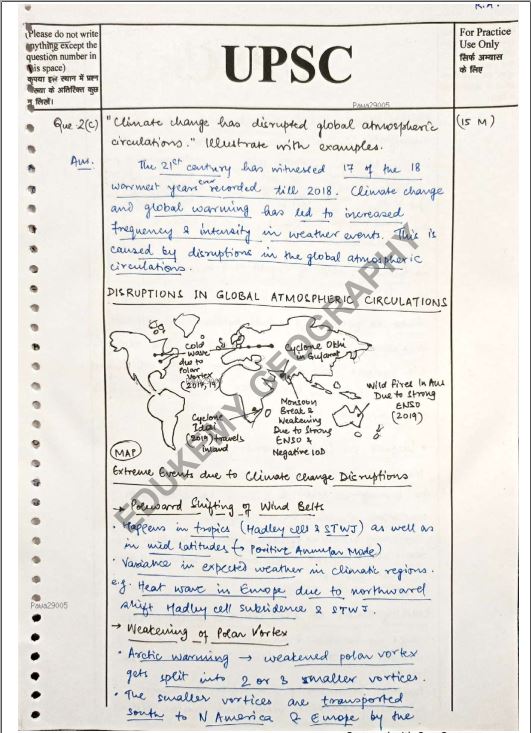 K.A.
(Please do not write
anything except the
question number in
this space)
कृपया इस स्थान में प्रश्न
संख्या के अतिरिक्त कुछ
न लिखें।
UPSC
For Practice
Use Only
सिर्फ अभ्यास
के लिए
Pawa29005
Que-2(c)
"Climate change has disrupted global atmospheric
circulations." Illustrate with examples.
(15 M)
Ans.
The 21st century has witnessed 17 of the 18
warmest years ever recorded till 2018. Climate change
and global warming has led to increased
frequency & intensity in weather events. This is
caused by disruptions in the global atmospheric
circulations.
DISRUPTIONS IN GLOBAL ATMOSPHERIC CIRCULATIONS
Cold
wave
due to
Polar
Vortex
(2018, 19)
Cyclone Okhi
in Gujarat
Wild Fires In Aus
Due to Strong
ENSO
(2019)
Monsoon
Break &
Weakening
Due to Strong
ENSO &
Negative IOD
Cyclone
Idai
(2019) travels
inland
MAP
Extreme Events due to Climate Change Disruptions
→ Poleward Shifting of Wind Belts
• Happens in tropics (Hadley cell & STWJ) as well as
in mid latitudes (→ Positive Annular Mode)
• Variance in expected weather in climatic regions.
e.g. Heat wave in Europe due to northward
shift Hadley cell subsidence & STWJ.
Pawa29005
→ Weakening of Polar Vortex
• Arctic warming → weakened polar vortex
gets split into 2 or 3 smaller vortices.
• The smaller vortices are transported
south to N America & Europe by the
EDUKEMY GEOGRAPHY